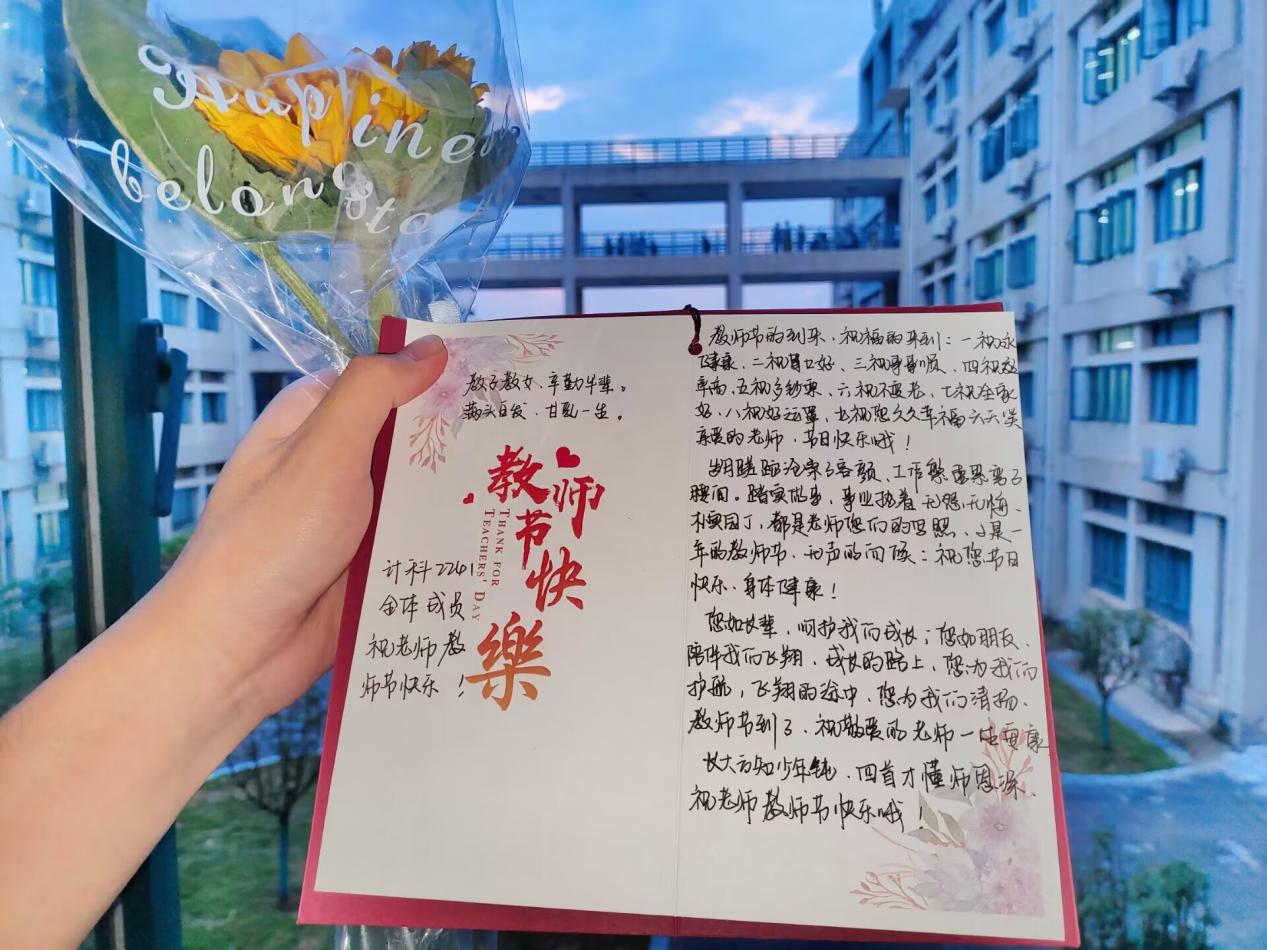 Happiness
belong
to
教子教女、辛勤半辈。
满头白发、甘乳一生。
教师
节快
樂
THANK FOR
TEACHERS' DAY
计科2241
全体成员
祝老师教
师节快乐！
教师节的到来、祝福的来到：一祝
健康、二祝胃口好、三祝事事顺、四祝
率高、五祝多钞票、六祝不变老、七祝全家
好、八祝好运罩、九祝您久久幸福六六
亲爱的老师，节日快乐哦！
沧桑了容颜、工作
腰间。踏实做事、事业执着无怨无悔、
园丁，都是老师您们的写照、又是一
年的教师节、无声的问候：祝您节日
快乐、身体健康！
您如长辈、呵护我们成长；您如朋友、
陪伴我们飞翔、成长的路上、您为我们
护航，飞翔的途中、您为我们清扬、
教师节到了、祝敬爱的老师一生
长大方知少年钝、回首才懂师恩深、
祝老师教师节快乐哦！